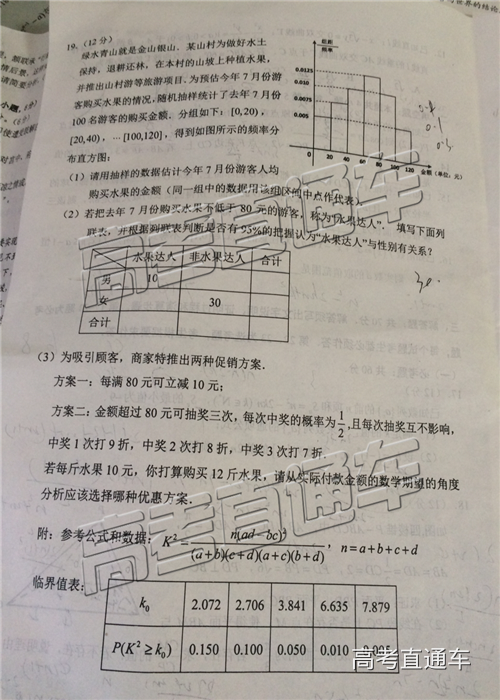 19.(12分)
绿水青山就是金山银山. 某山村为做好水土
保持，退耕还林，在本村的山坡上种植水果，
并推出山村游等旅游项目. 为预估今年7月份游
客购买水果的情况，随机抽样统计了去年7月份
100名游客的购买金额. 分组如下：[0,20)，
[20,40)，…[100,120]，得到如图所示的频率分
布直方图：
频率
0.0125
0.010
0.0075
0.005
0 20 40 60 80 100 120 金额(单位：元)
(1) 请用抽样的数据估计今年7月份游客人均
购买水果的金额（同一组中的数据用该组区间中点作代表）.
(2) 若把去年7月份购买水果不低于80元的游客，称为“水果达人”. 填写下面列
联表，并根据列联表判断是否有95%的把握认为“水果达人”与性别有关系？
水果达人 非水果达人 合计
男 10
女 30
合计
(3) 为吸引顾客，商家特推出两种促销方案.
方案一：每满80元可立减10元；
方案二：金额超过80元可抽奖三次，每次中奖的概率为1/2，且每次抽奖互不影响，
中奖1次打9折，中奖2次打8折，中奖3次打7折.
若每斤水果10元，你打算购买12斤水果，请从实际付款金额的数学期望的角度
分析应该选择哪种优惠方案.
附：参考公式和数据：K²=n(ad−bc)²/((a+b)(c+d)(a+c)(b+d))，n=a+b+c+d
临界值表：
k₀ 2.072 2.706 3.841 6.635 7.879
P(K²≥k₀) 0.150 0.100 0.050 0.010 0.005
高考直通车
高考直通车
高考直通车